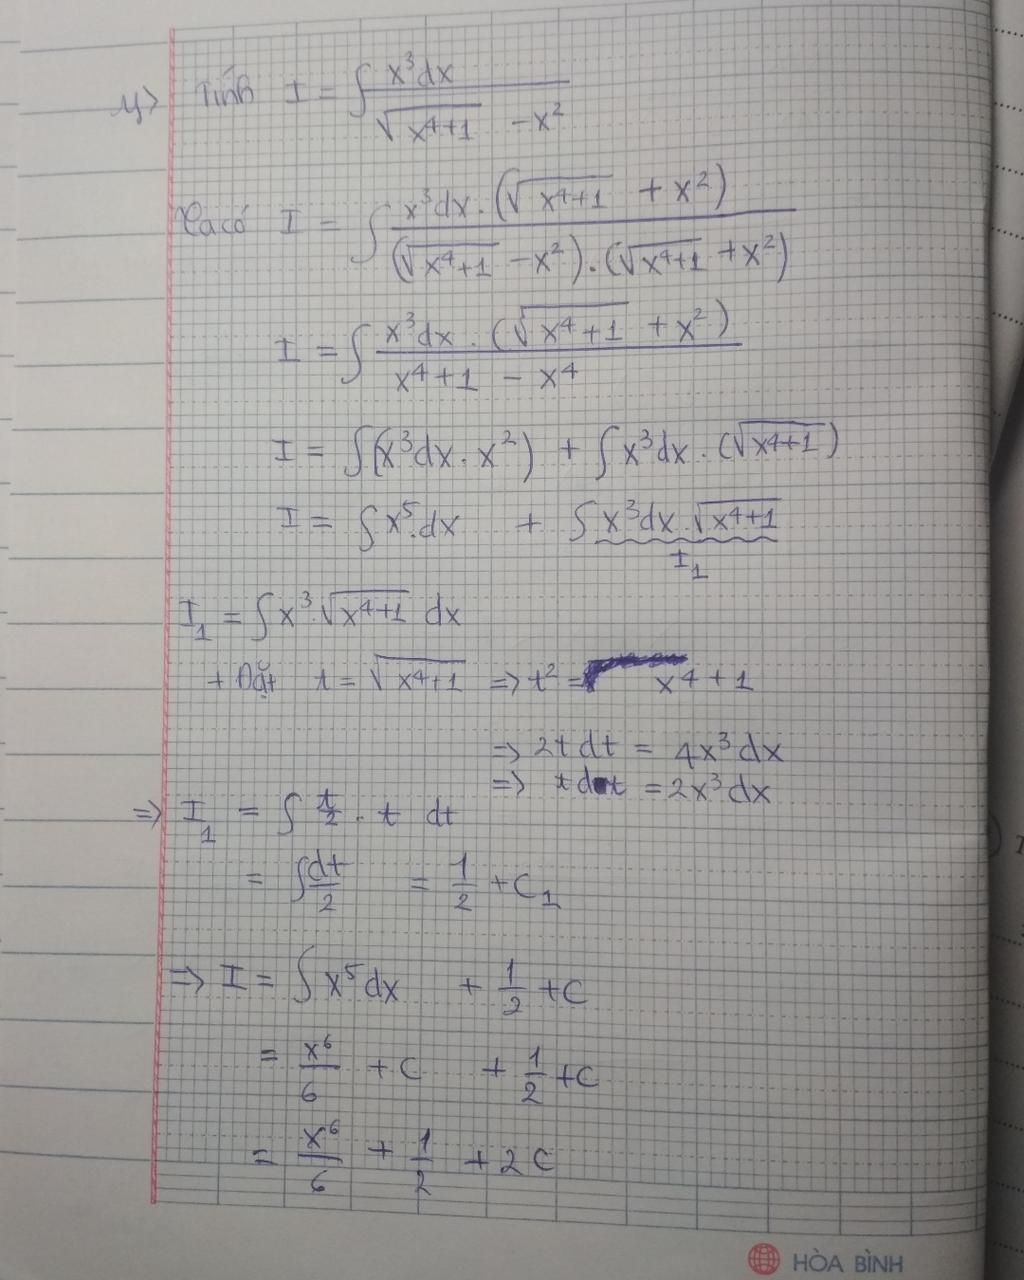 4) Tính I = ∫ x³dx / (√(x⁴+1) - x²)
Ta có I = ∫ x³dx.(√(x⁴+1) + x²) / (√(x⁴+1) - x²).(√(x⁴+1) + x²)
I = ∫ x³dx.(√(x⁴+1) + x²) / x⁴+1 - x⁴
I = ∫(x³dx.x²) + ∫ x³dx.(√(x⁴+1))
I = ∫ x⁵.dx + ∫ x³dx.√(x⁴+1)
I₁
I₁ = ∫ x³.√(x⁴+1) dx
+ Đặt t = √(x⁴+1) => t² = x⁴+1
=> 2t dt = 4x³dx
=> t dt = 2x³dx
=> I₁ = ∫ t/2 . t dt
= ∫ dt/2 = 1/2 + C₁
=> I = ∫ x⁵dx + 1/2 + C
= x⁶/6 + C + 1/2 + C
= x⁶/6 + 1/2 + 2C
HÒA BÌNH